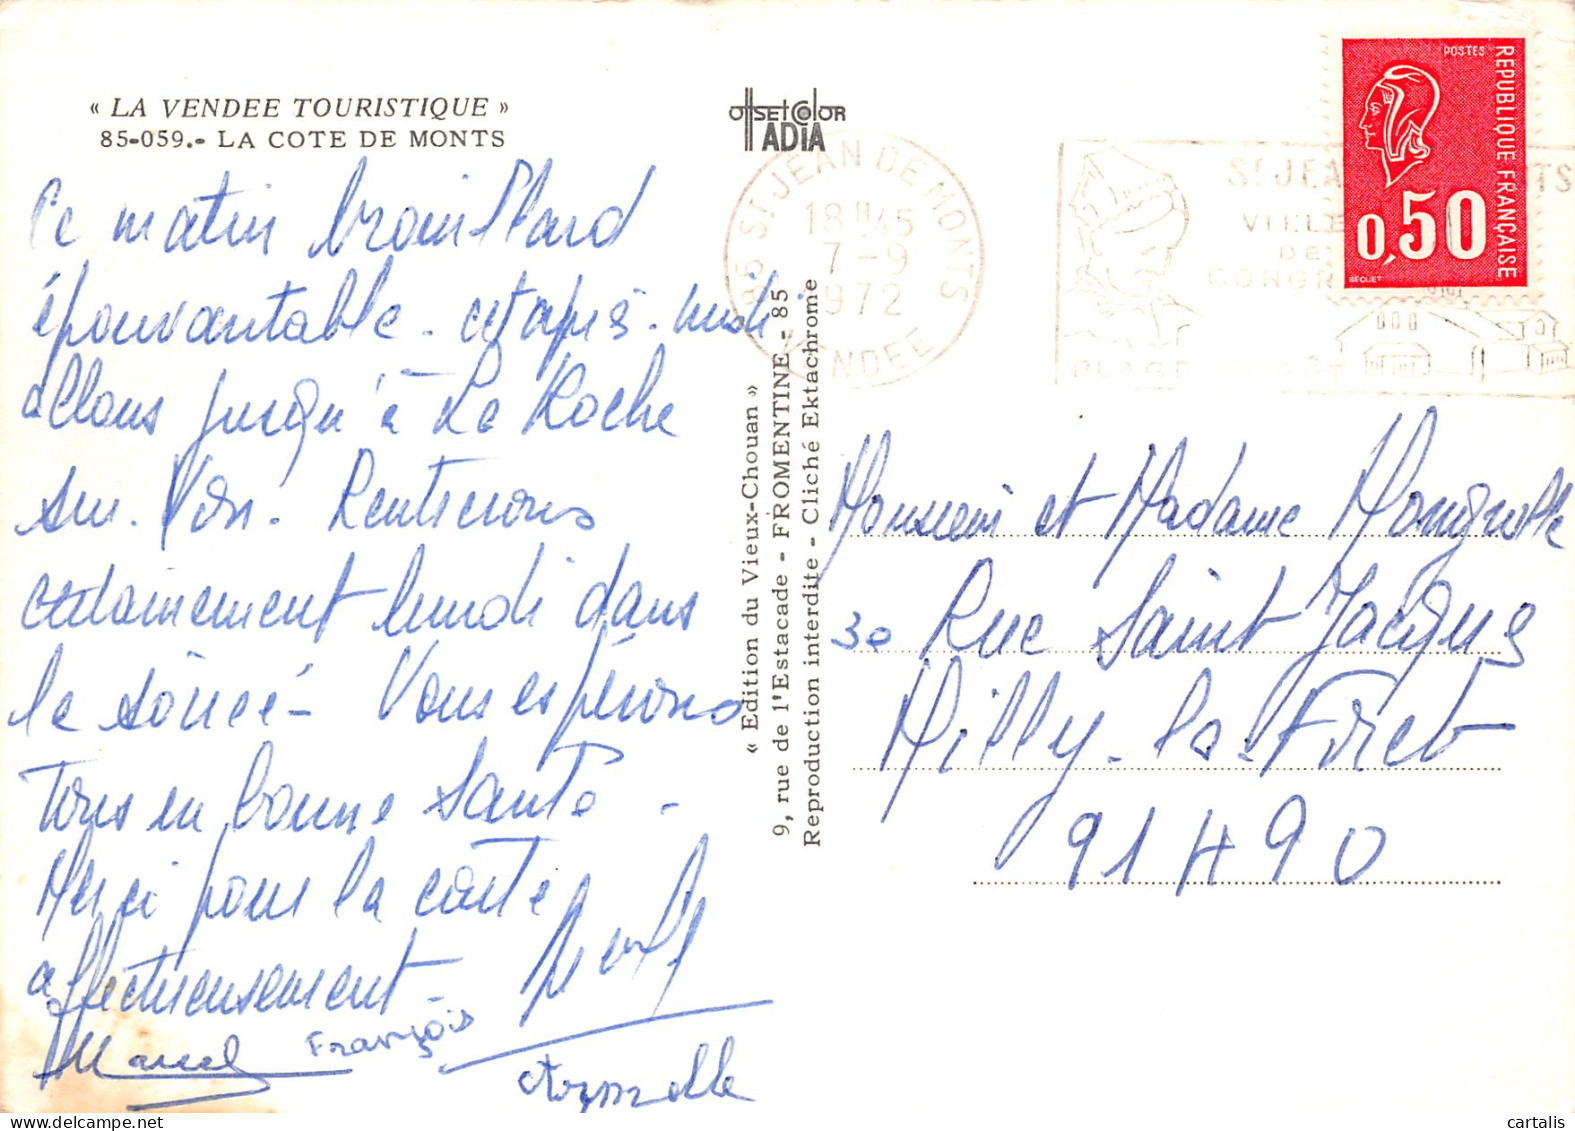 « LA VENDEE TOURISTIQUE »
85-059.- LA COTE DE MONTS
Ce matin brouillard
épouvantable - cet après-midi
allons jusqu'à La Roche
sur-Yon. Rentrerons
certainement lundi dans
la soirée - Vous espérons
tous en bonne santé -
Merci pour la carte
affectueusement -
Marcel François
offset color
ADIA
85 ST JEAN DE MONTS
18H45
7-9
1972
VENDEE
ST JEA MONTS
VILLE
DE
CONGR
PLAGE
POSTES
REPUBLIQUE FRANÇAISE
0,50
BEQUET
« Edition du Vieux-Chouan »
9, rue de l'Estacade - FROMENTINE - 85
Reproduction interdite - Cliché Ektachrome
Monsieur et Madame
30 Rue Saint Jacques
Milly-la-Forêt
91490
cartalis